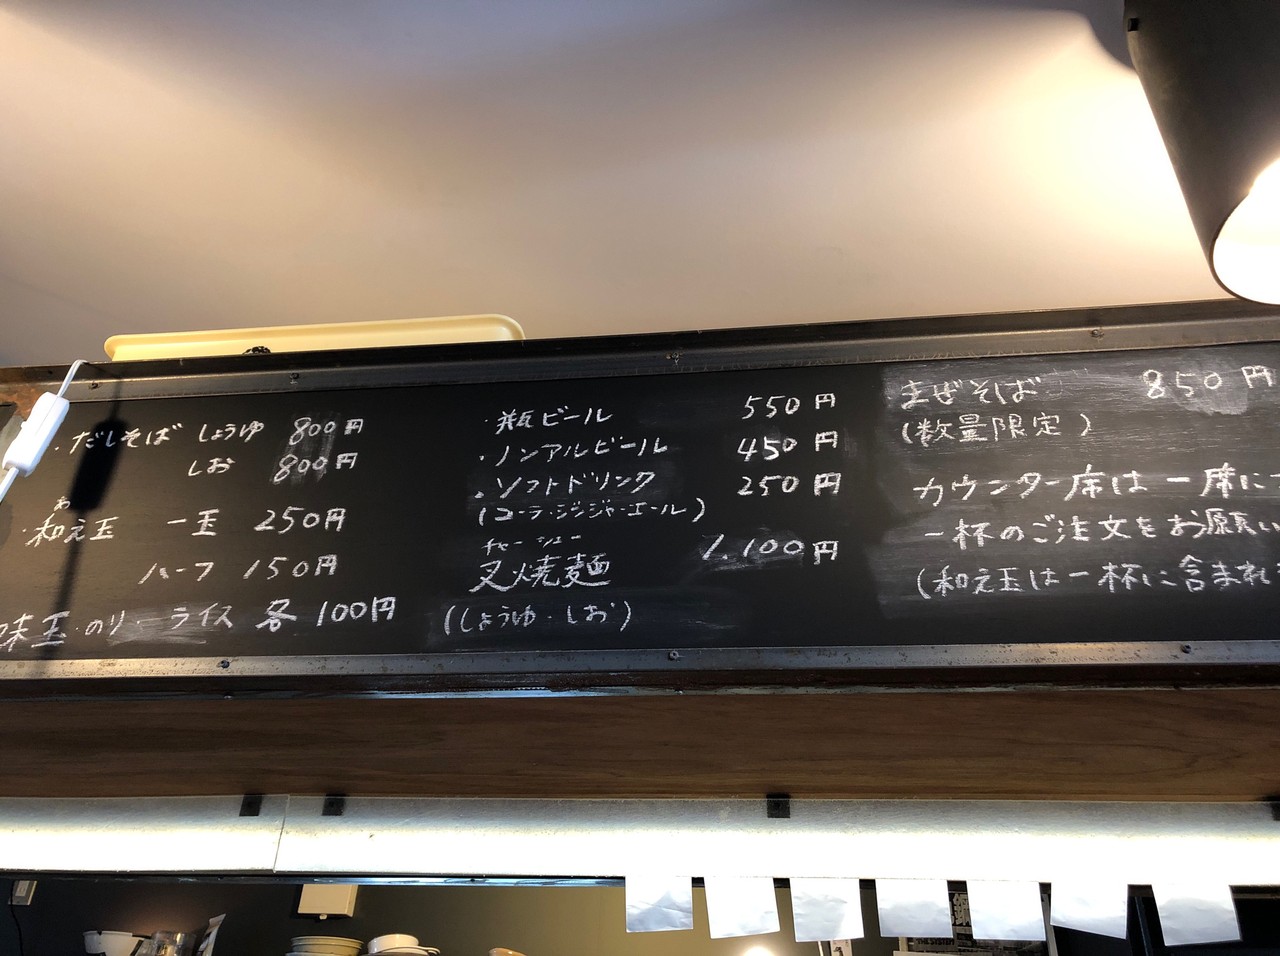 ・だしそば しょうゆ 800円
しお 800円
あ
・和え玉 一玉 250円
ハーフ 150円
味玉・のり・ライス 各 100円
・瓶ビール 550円
・ノンアルビール 450円
・ソフトドリンク 250円
(コーラ・ジンジャーエール)
チャーシュー
叉焼麺 1.100円
(しょうゆ・しお)
まぜそば 850円
(数量限定)
カウンター席は一席に
一杯のご注文をお願い
(和え玉は一杯に含まれ